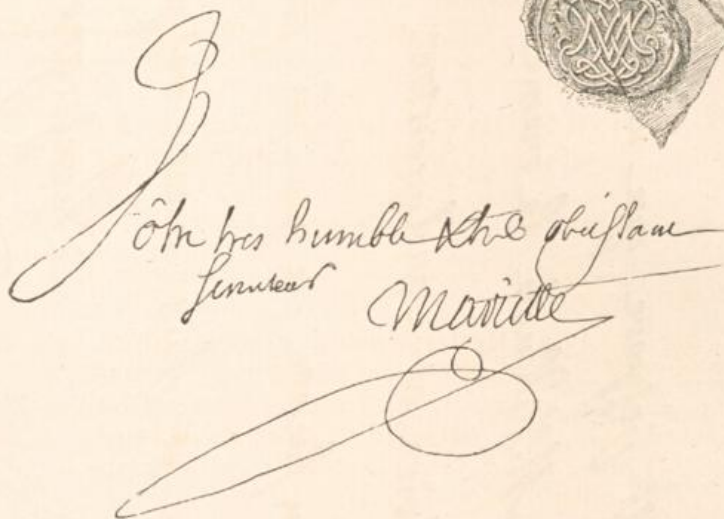 Vôtre tres humble & tres obeissant
serviteur
Mariette